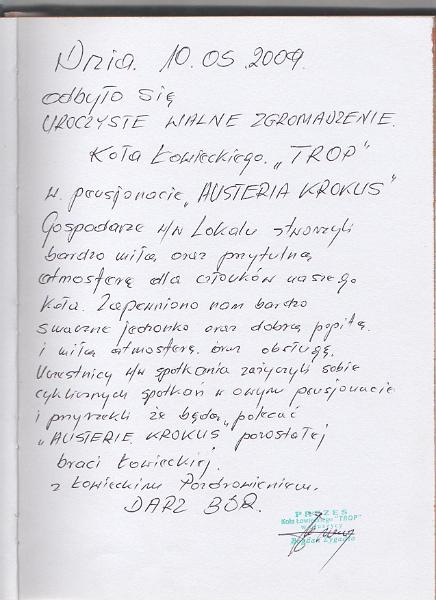 Dnia. 10.05.2009.
odbyło się
UROCZYSTE WALNE ZGROMADZENIE.
Koła Łowieckiego. „TROP"
w. pensjonacie „AUSTERIA KROKUS"
Gospodarze w/w Lokalu stworzyli
bardzo miłą oraz przytulną
atmosferę dla członków naszego
Koła. Zapewniono nam bardzo
smaczne jedzonko oraz dobrą popitę.
i miłą atmosferę. oraz obsługę.
Uczestnicy w/w spotkania zażyczyli sobie
cyklicznych spotkań w owym pensjonacie
i przyrzekli że będą „polecać
„AUSTERIE KROKUS pozostałej
braci Łowieckiej.
z Łowieckim Pozdrowieniem.
DARZ BÓR.
PREZES
Koła Łowieckiego "TROP"
Bogdan